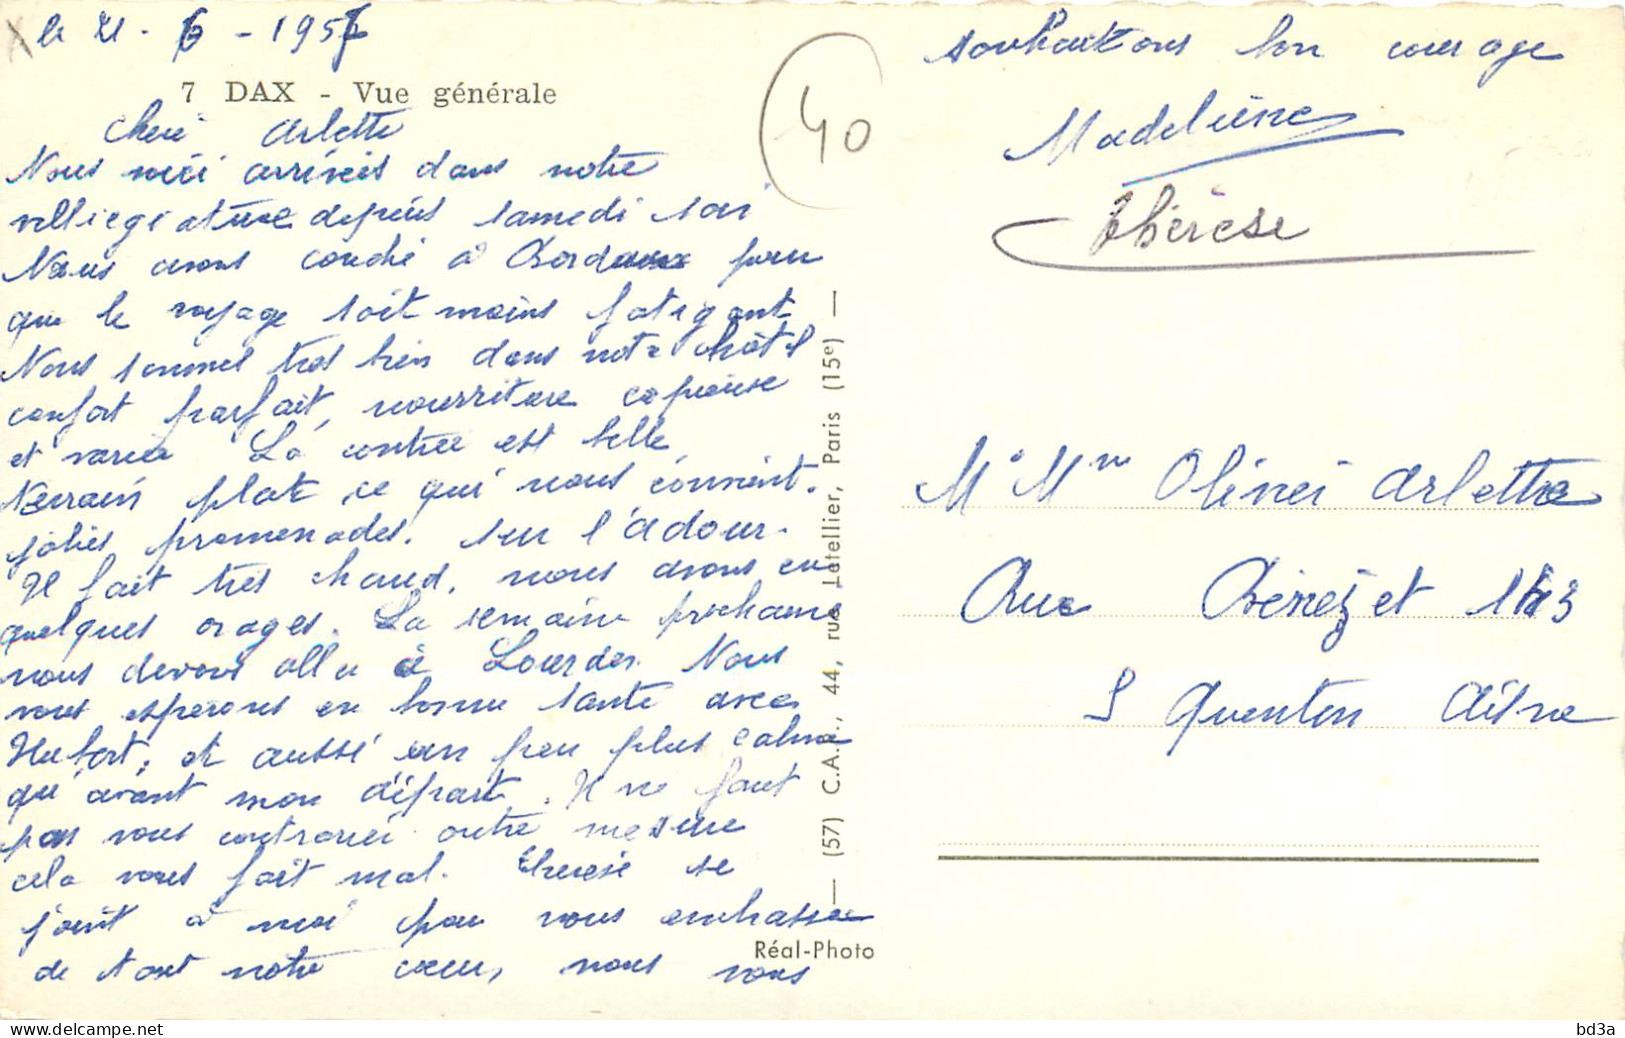 le 21 - 6 - 1957
7 DAX - Vue générale
40
Cheré Arlette
Nous voici arrivées dans notre
villiegiature depuis samedi soir
Nous avons couché à Bordeaux pour
que le voyage soit moins fatigant
Nous sommes tres bien dans notre hôtel
confort parfait, nourriture copieuse
et variée La contrée est belle
Terrain plat, ce qui nous convient.
jolies promenades. sur l'adour.
Il fait très chaud, nous avons eu
quelques orages. La semaine prochaine
nous devons aller à Lourdes. Nous
vous esperons en bonne santé avec
Hubert, et aussi un peu plus calme
qu'avant mon départ. Il ne faut
pas vous contrarier outre mesure
cela vous fait mal. Therese se
joint à moi pour vous embrasser
de tout notre cœur, nous vous
souhaitons bon courage
Madeleine
Thérèse
M. Mme Olivier Arlette
Rue Bénézet
St Quentin Aisne
— (57) C.A.P., 44, rue Letellier, Paris (15e) —
Réal-Photo
delcampe.net
bd3a